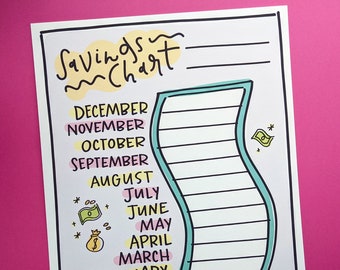 Savings
Chart
DECEMBER
NOVEMBER
OCTOBER
SEPTEMBER
AUGUST
JULY
JUNE
MAY
APRIL
MARCH